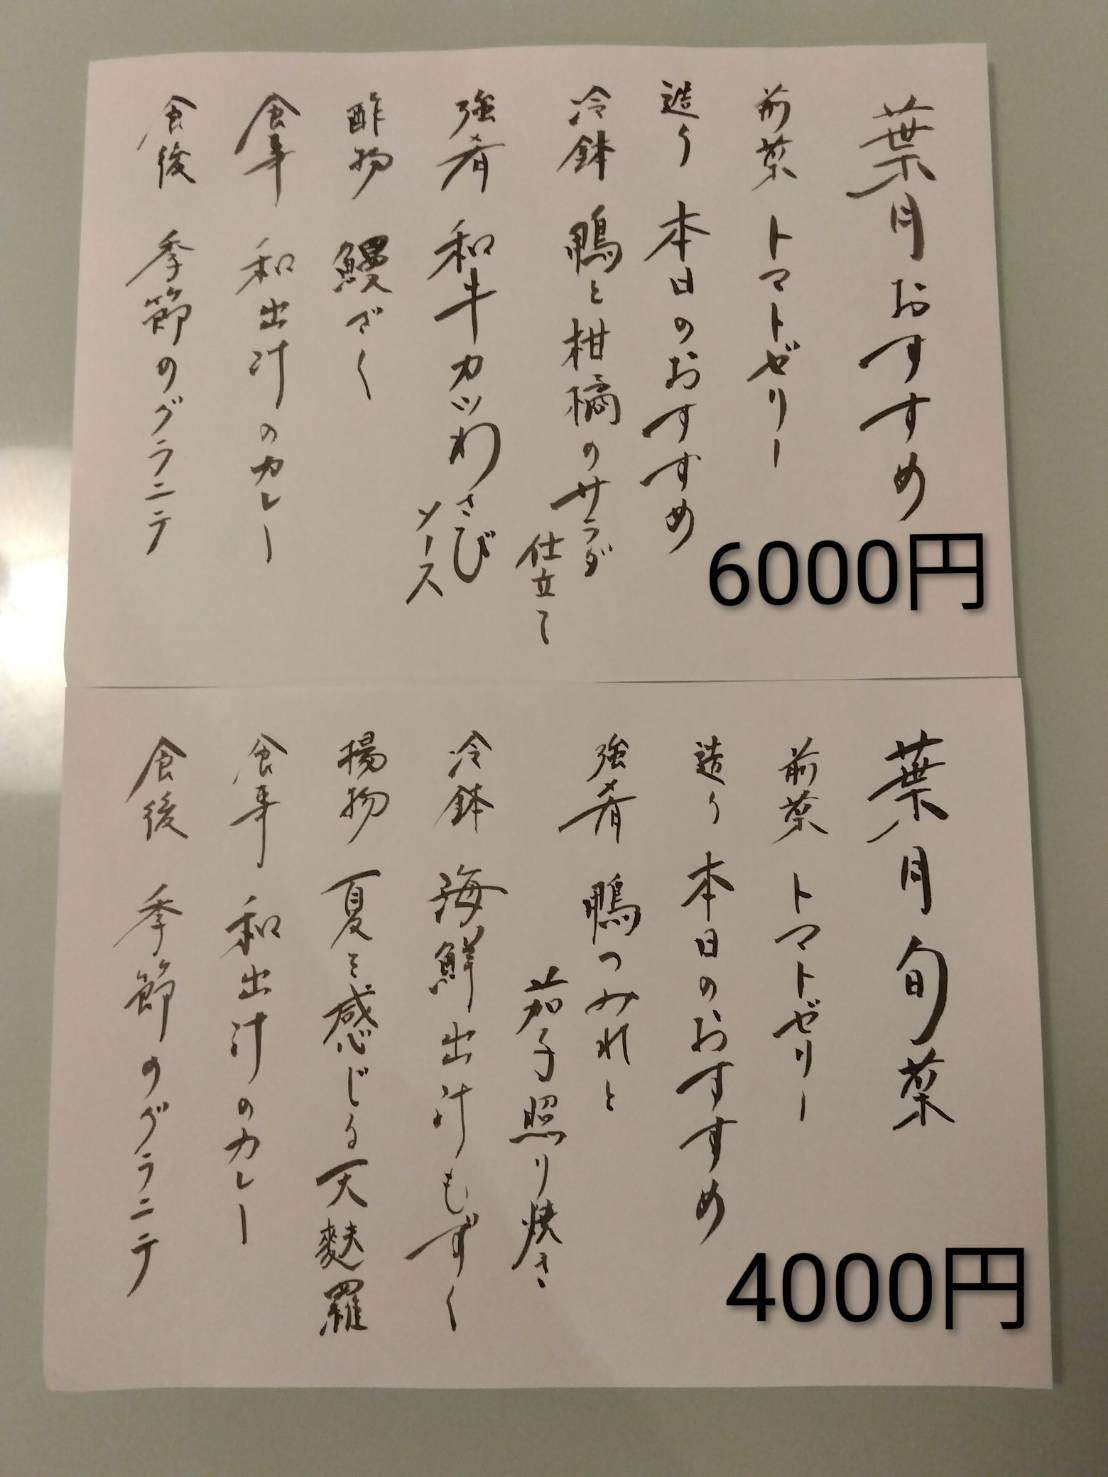 葉月おすすめ
前菜 トマトゼリー
造り 本日のおすすめ
冷鉢 鴨と柑橘のサラダ
仕立て
強肴 和牛カツわさび
ソース
酢物 鰻ざく
食事 和出汁のカレー
食後 季節のグラニテ
6000円
葉月旬菜
前菜 トマトゼリー
造り 本日のおすすめ
強肴 鴨つみれと
茄子照り焼き
冷鉢 海鮮出汁もずく
揚物 夏を感じる天麩羅
食事 和出汁のカレー
食後 季節のグラニテ
4000円